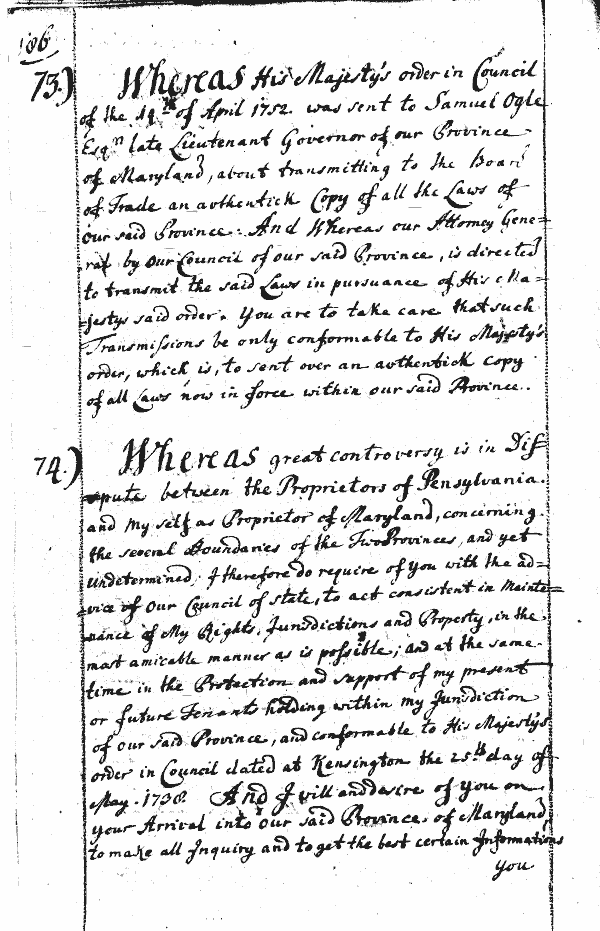 186
73.) Whereas His Majesty's order in Council
of the 19th of April 1752. was sent to Samuel Ogle
Esqr. late Lieutenant Governor of our Province
of Maryland, about transmitting to the Board
of Trade an authentick Copy of all the Laws of
our said Province. And Whereas our Attorney Gene=
ral by our Council of our said Province, is directed
to transmit the said Laws in pursuance of His Ma=
=jestys said order. You are to take care that such
Transmissions be only conformable to His Majesty's
order, which is, to sent over an authentick copy
of all Laws now in force within our said Province..
74.) Whereas great controversy is in Dis=
=pute between the Proprietors of Pensylvania.
and My self as Proprietor of Maryland, concerning.
the several Boundaries of the Two Provinces, and yet
undetermined; I therefore do require of you with the ad=
=vice of our Council of state, to act consistent in Mainte=
=nance of My Rights, Jurisdictions and Property, in the
most amicable manner as is possible; and at the same.
time in the Protection and support of my present
or future Tenants holding within my Jurisdiction
of our said Province, and conformable to His Majesty's
order in Council dated at Kensington the 25th day of
May. 1738. And I will and desire of you on
your Arrival into our said Province. of Maryland,
to make all Inquiry and to get the best certain Informations
you